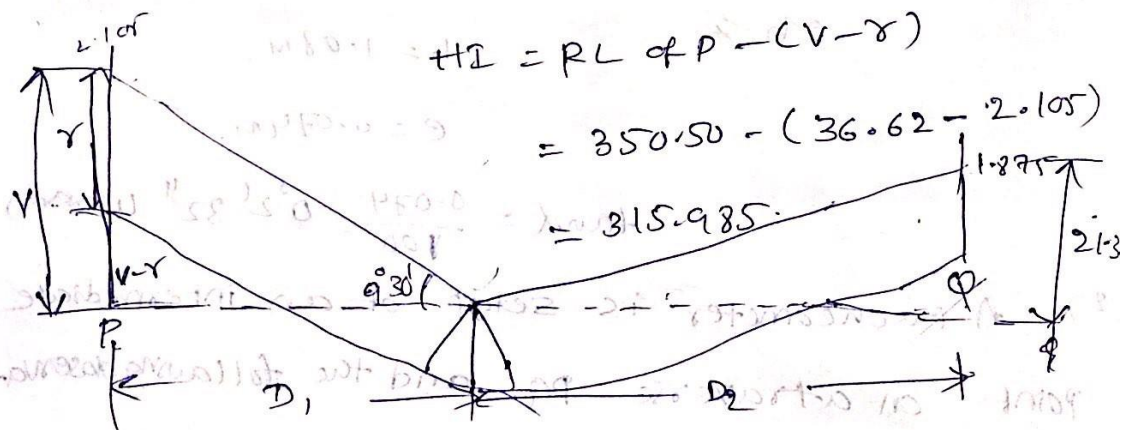 2.105
HI = RL of P - (V-r)
= 350.50 - (36.62 - 2.105)
= 315.985.
1.875
r
V
V-r
9°30'
21.3
P
Q
D1
D2